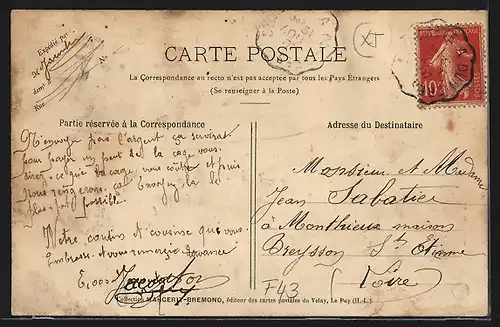 Expédié par
M
demt
Rue
N.
XT
CARTE POSTALE
10
La Correspondance au recto n'est pas acceptée par tous les Pays Étrangers
(Se renseigner à la Poste)
Partie réservée à la Correspondance
Adresse du Destinataire
N'envoye pas l'argent ça servirat
pour payer un peut de la cage vous
direz ce que la cage vous coûte et puis
nous rengerons ça Envoyez la le
plus tot possible
Votre cousin et cousine que vous
Embrasse et vous remercie davance
Monsieur et Madame
Jean Sabatier
à Monthieux maison
Breysson St Étienne
(Loire)
F43
Collection MARGERIT-BREMOND, éditeur des cartes postales du Velay, Le Puy (H.-L.)